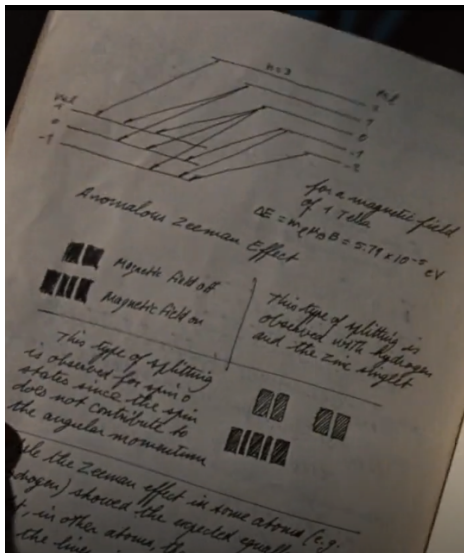 n=3
ml
ml
1
0
-1
2
1
0
-1
-2
for a magnetic field
of 1 Tella
ΔE = mlμBB = 5.79 x 10⁻⁵ eV
Anomalous Zeeman Effect
Magnetic field off
Magnetic field on
This type of splitting is
observed with hydrogen
and the zinc singlet
This type of splitting
is observed for spin 0
states since the spin
does not contribute to
the angular momentum
the Zeeman effect in some atoms (e.g.
showed the expected
in other atoms, the
the lines